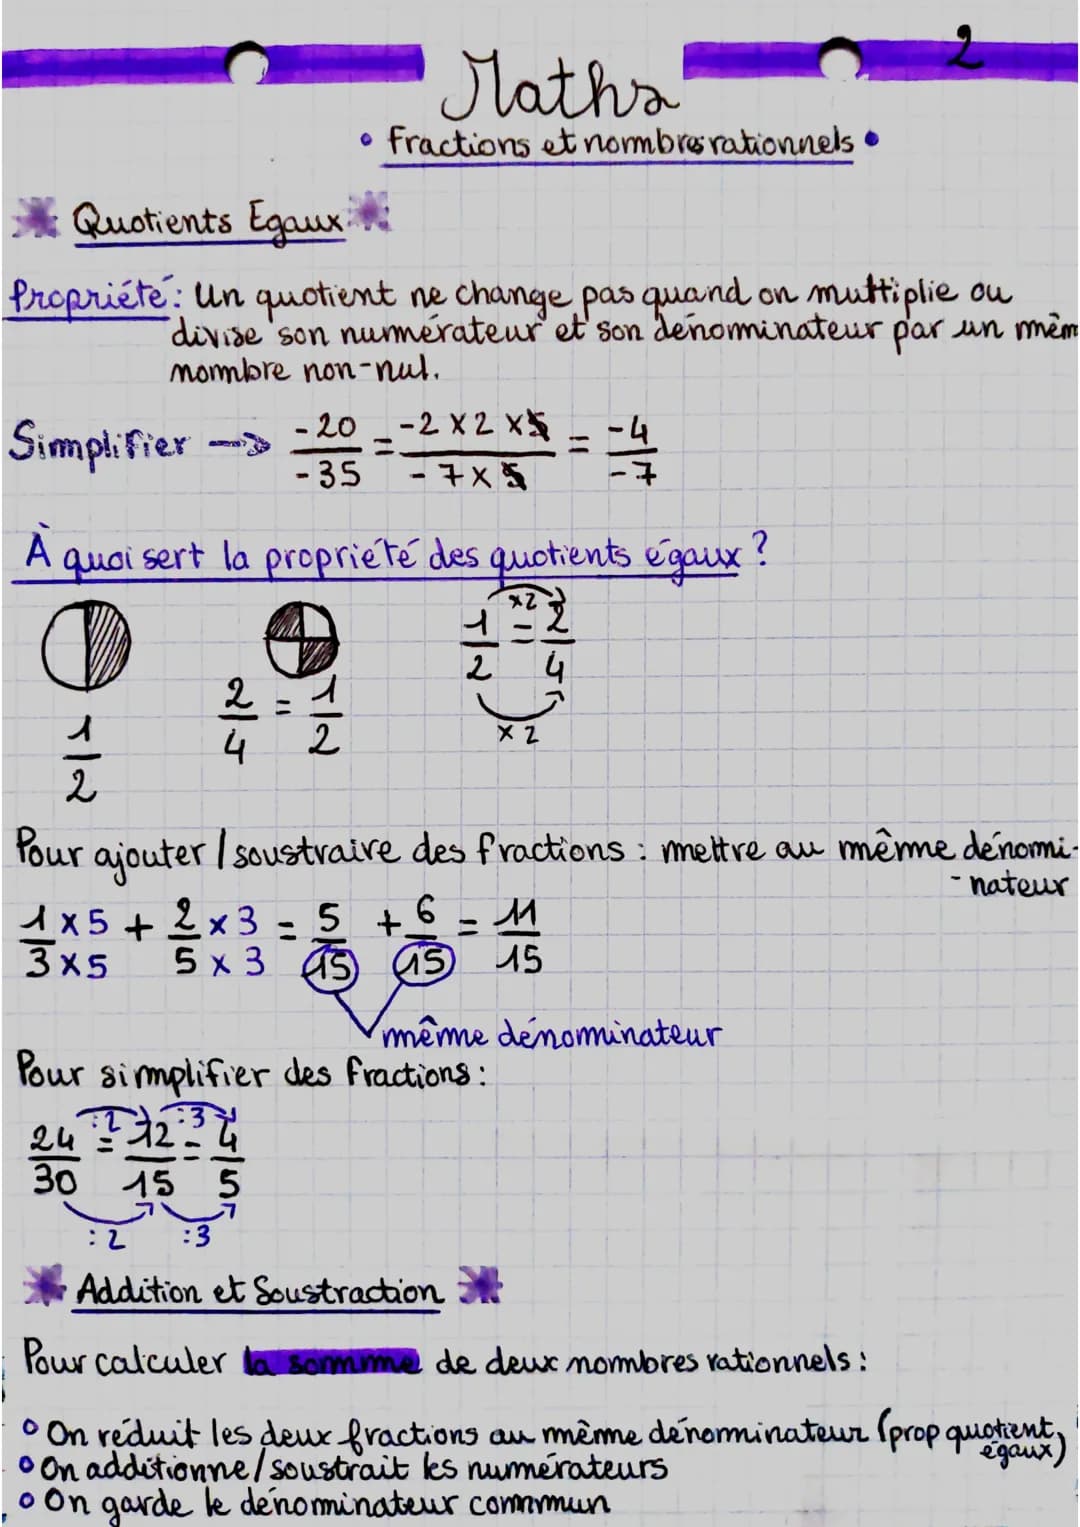 2
Maths
• Fractions et nombres rationnels •
Quotients Egaux
Propriété : Un quotient ne change pas quand on multiplie ou
divise son numérateur et son dénominateur par un mêm
nombre non-nul.
Simplifier --> -20/-35 = -2 x 2 x 5/-7 x 5 = -4/-7
À quoi sert la propriété des quotients égaux ?
x2
1/2 = 2/4
x2
2/4 = 1/2
1/2
Pour ajouter / soustraire des fractions : mettre au même dénomi-
-nateur
1 x 5/3 x 5 + 2 x 3/5 x 3 = 5/15 + 6/15 = 11/15
même dénominateur
Pour simplifier des fractions :
:2 :3
24/30 = 12/15 = 4/5
:2 :3
Addition et Soustraction
Pour calculer la somme de deux nombres rationnels :
° On réduit les deux fractions au même dénominateur (prop quotient,
égaux)
° On additionne / soustrait les numérateurs
° On garde le dénominateur commun